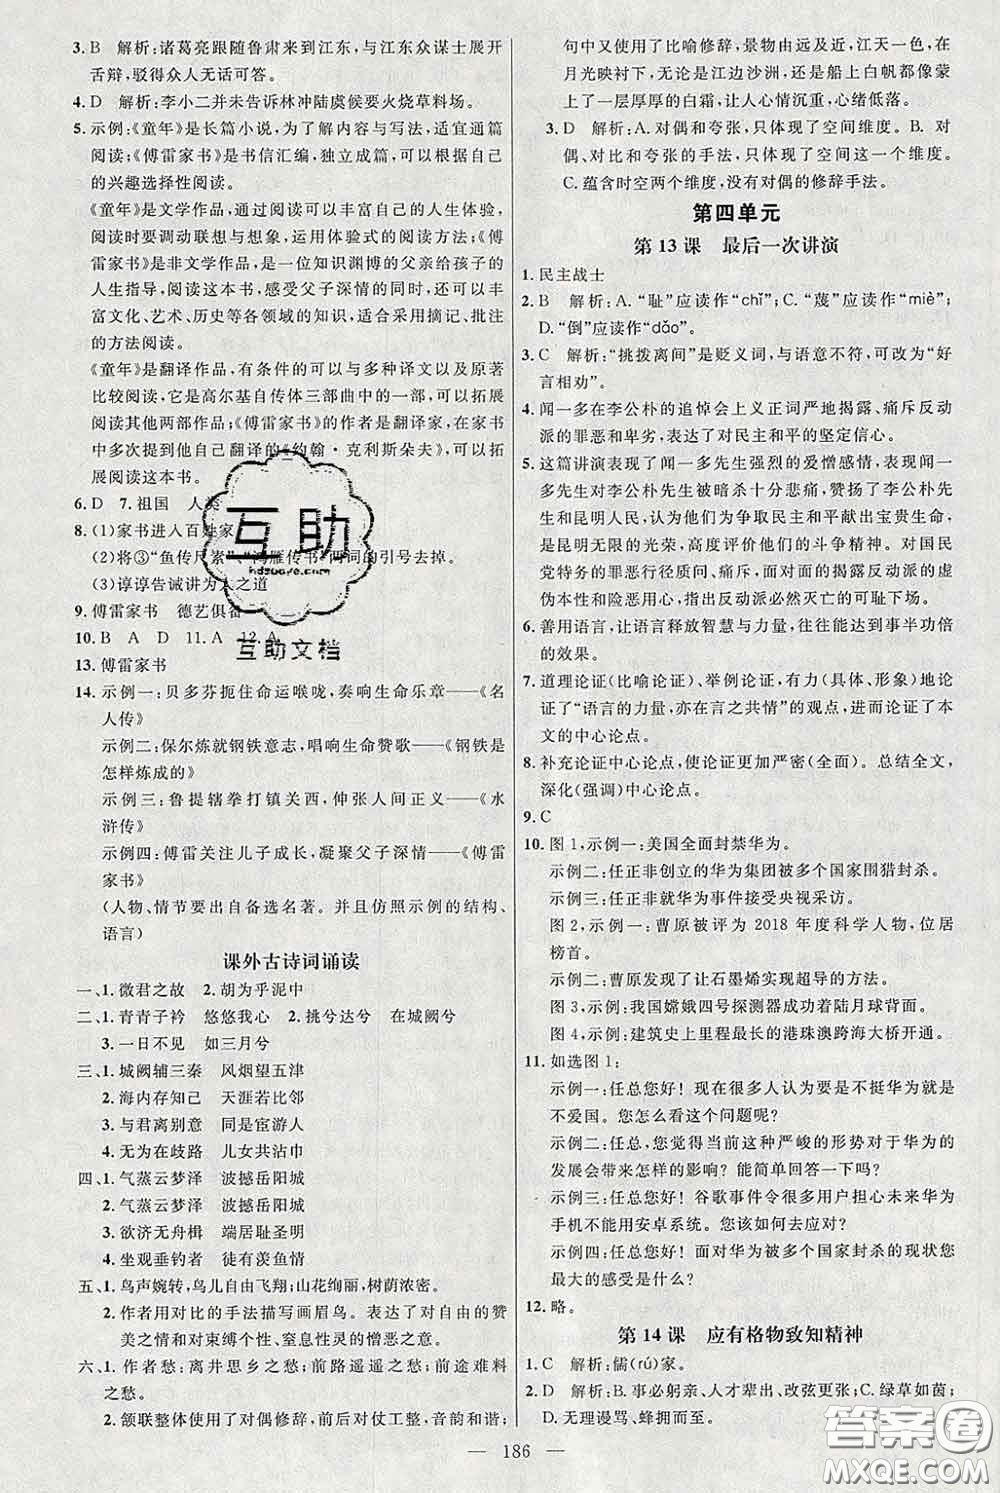 3. B　解析:诸葛亮跟随鲁肃来到江东,与江东众谋士展开
舌辩,驳得众人无话可答。
4. D　解析:李小二并未告诉林冲陆虞候要火烧草料场。
5. 示例:《童年》是长篇小说,为了解内容与写法,适宜通篇
阅读;《傅雷家书》是书信汇编,独立成篇,可以根据自己
的兴趣选择性阅读。
《童年》是文学作品,通过阅读可以丰富自己的人生体验,
阅读时要调动联想与想象,运用体验式的阅读方法;《傅
雷家书》是非文学作品,是一位知识渊博的父亲给孩子的
人生指导,阅读这本书,感受父子深情的同时,还可以丰
富文化、艺术、历史等各领域的知识,适合采用摘记、批注
的方法阅读。
《童年》是翻译作品,有条件的可以与多种译文以及原著
比较阅读,它是高尔基自传体三部曲中的一部,可以拓展
阅读其他两部作品;《傅雷家书》的作者是翻译家,在家书
中多次提到他自己翻译的《约翰·克利斯朵夫》,可以拓
展阅读这本书。
6. D　7. 祖国　人类
8. (1)家书进入百姓家
(2)将③“鱼传尺素”、“鸿雁传书”两词的引号去掉。
(3)谆谆告诫讲为人之道
9. 傅雷家书　德艺俱备
10. B　A　D　11. A　12. A
13. 傅雷家书
14. 示例一:贝多芬扼住命运喉咙,奏响生命乐章——《名
人传》
示例二:保尔炼就钢铁意志,唱响生命赞歌——《钢铁是
怎样炼成的》
示例三:鲁提辖拳打镇关西,伸张人间正义——《水
浒传》
示例四:傅雷关注儿子成长,凝聚父子深情——《傅雷
家书》
(人物、情节要出自备选名著。并且仿照示例的结构、
语言)
课外古诗词诵读
一、1. 微君之故　2. 胡为乎泥中
二、1. 青青子衿　悠悠我心　2. 挑兮达兮　在城阙兮
3. 一日不见　如三月兮
三、1. 城阙辅三秦　风烟望五津
2. 海内存知己　天涯若比邻
3. 与君离别意　同是宦游人
4. 无为在歧路　儿女共沾巾
四、1. 气蒸云梦泽　波撼岳阳城
2. 气蒸云梦泽　波撼岳阳城
3. 欲济无舟楫　端居耻圣明
4. 坐观垂钓者　徒有羡鱼情
五、1. 鸟声婉转,鸟儿自由飞翔;山花绚丽,树荫浓密。
2. 作者用对比的手法描写画眉鸟。表达了对自由的赞
美之情和对束缚个性、窒息性灵的憎恶之意。
六、1. 作者愁:离井思乡之愁;前路遥遥之愁;前途难料
之愁。
2. 颔联整体使用了对偶修辞,前后对仗工整,音韵和谐;
句中又使用了比喻修辞,景物由远及近,江天一色,在
月光映衬下,无论是江边沙洲,还是船上白帆都像蒙
上了一层厚厚的白霜,让人心情沉重,心绪低落。
3. D　解析:A. 对偶和夸张,只体现了空间维度。B. 对
偶、对比和夸张的手法,只体现了空间这一个维度。
C. 蕴含时空两个维度,没有对偶的修辞手法。
第四单元
第 13 课　最后一次讲演
1. 民主战士
2. B　解析:A. “耻”应读作“chǐ”;C. “蔑”应读作“miè”;
D. “倒”应读作“dǎo”。
3. C　解析:“挑拨离间”是贬义词,与语意不符,可改为“好
言相劝”。
4. 闻一多在李公朴的追悼会上义正词严地揭露、痛斥反动
派的罪恶和卑劣,表达了对民主和平的坚定信心。
5. 这篇讲演表现了闻一多先生强烈的爱憎感情,表现闻
一多先生对李公朴先生被暗杀十分悲痛,赞扬了李公朴先生
和昆明人民,认为他们为争取民主和平献出宝贵生命,
是昆明无限的光荣,高度评价他们的斗争精神。对国民
党特务的罪恶行径质问、痛斥,面对面的揭露反动派的虚
伪本性和险恶用心,指出反动派必然灭亡的可耻下场。
6. 善用语言,让语言释放智慧与力量,往往能达到事半功倍
的效果。
7. 道理论证(比喻论证)、举例论证,有力(具体、形象)地论
证了“语言的力量,亦在言之共情”的观点,进而论证了本
文的中心论点。
8. 补充论证中心论点,使论证更加严密(全面)。总结全文,
深化(强调)中心论点。
9. C
10. 图 1,示例一:美国全面封禁华为。
示例二:任正非创立的华为集团被多个国家围猎封杀。
示例三:任正非就华为事件接受央视采访。
图 2,示例一:曹原被评为 2018 年度科学人物,位居
榜首。
示例二:曹原发现了让石墨烯实现超导的方法。
图 3,示例:我国嫦娥四号探测器成功着陆月球背面。
图 4,示例:建筑史上里程最长的港珠澳跨海大桥开通。
11. 如选图 1:
示例一:任总您好! 现在很多人认为要是不挺华为就是
不爱国。您怎么看这个问题呢?
示例二:任总,您觉得当前这种严峻的形势对于华为的
发展会带来怎样的影响? 能简单回答一下吗?
示例三:任总您好! 谷歌事件令很多用户担心未来华为
手机不能用安卓系统。您该如何去应对?
示例四:任总您好! 面对华为被多个国家封杀的现状您
最大的感受是什么?
12. 略。
第 14 课　应有格物致知精神
1. C　解析:儒(rú)家。
2. D　解析:B. 事必躬亲、人才辈出、改弦更张;C. 绿草如茵;
D. 无理谩骂、蜂拥而至。
— 186 —
互助
hdzuoye.com
互助文档
答案圈
MXQE.COM